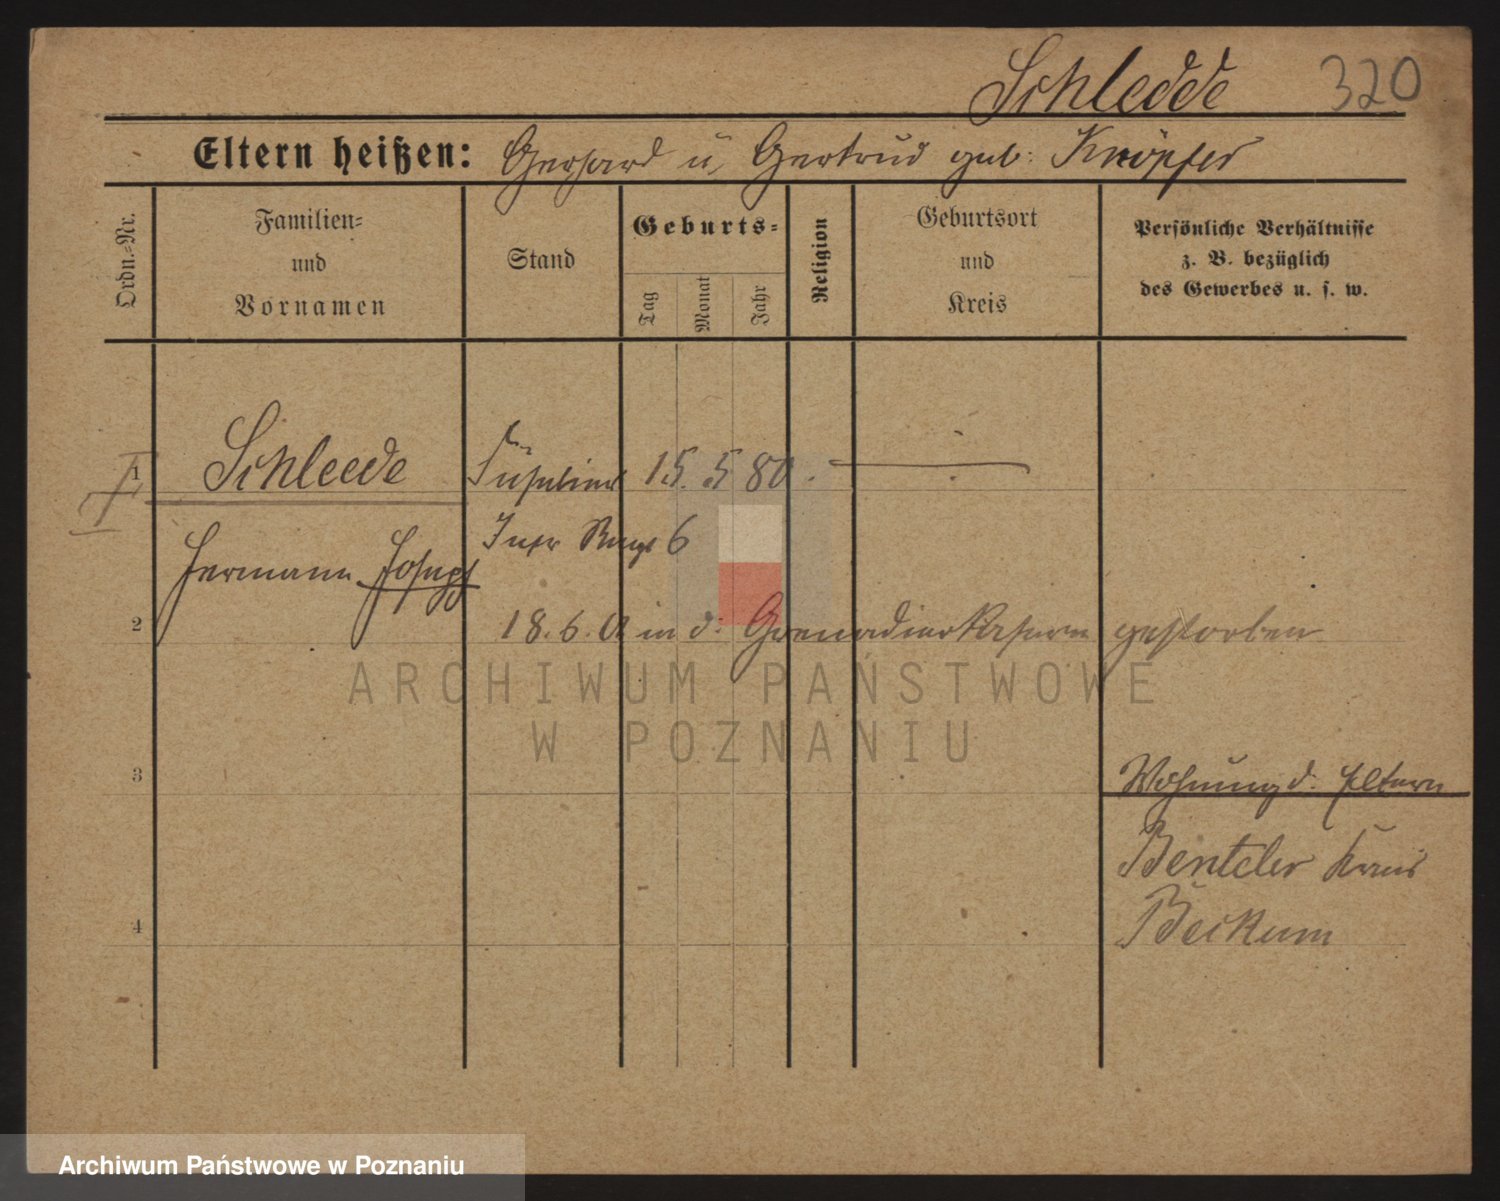 Schledde 320
Eltern heißen: Gerhard u. Gertrud geb: Knöpfer
Ordn.-Nr.
Familien- und Vornamen
Stand
Geburts-
Tag
Monat
Jahr
Religion
Geburtsort und Kreis
Persönliche Verhältnisse
z. B. bezüglich
des Gewerbes u. s. w.
1 Schleede Füselier 15. 5 80.
Hermann Joseph Infr Regt 6
2 18. 6. 01 in d. Grenadierkaserne gestorben
ARCHIWUM PAŃSTWOWE
W POZNANIU
3 Wohnung d. Eltern
Benteler Kreis
4 Beckum
Archiwum Państwowe w Poznaniu